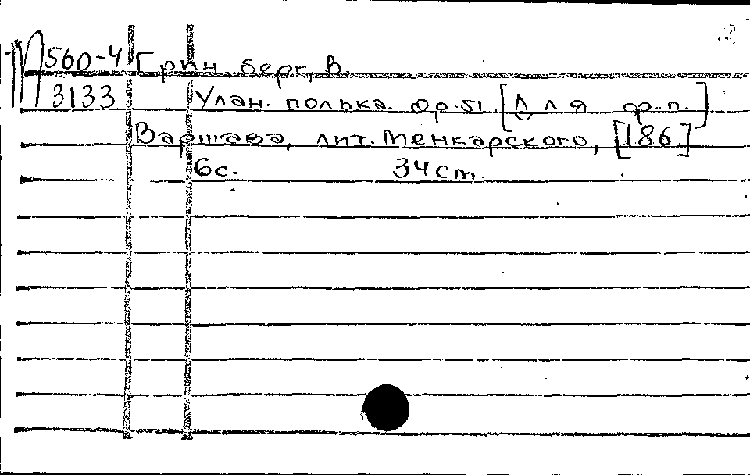 М 560-4 Гринберг, В.
3133 Улан. полька. Op. 51. [Для ф.-п.]
Варшава, лит. Менкарского, [186.]
6 с. 34 cm.